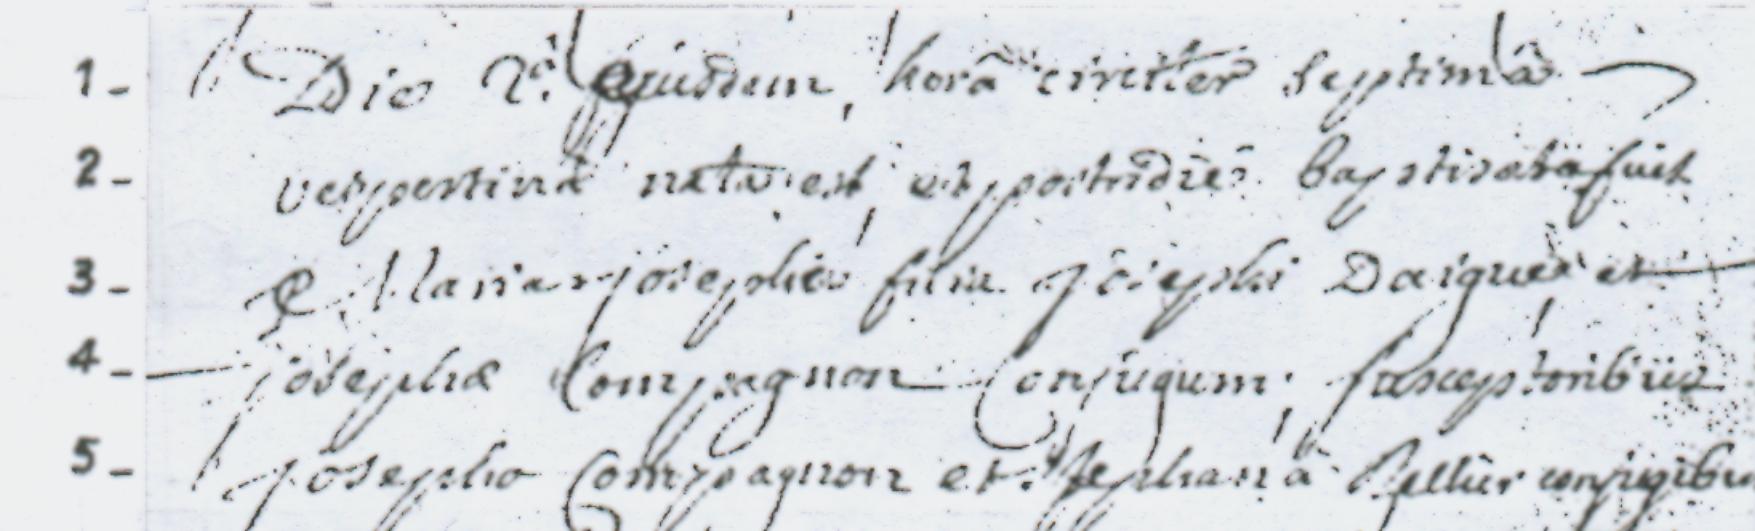 1 - Die 2.ª ejusdem, horâ circiter septimâ
2 - vespertinâ nata est, et postridiè baptisata fuit
3 - Maria-josepha filia Josephi Daigue et
4 - josephæ Compagnon Conjugum; susceptoribus
5 - josepho Compagnon et Stephanâ conjugibus